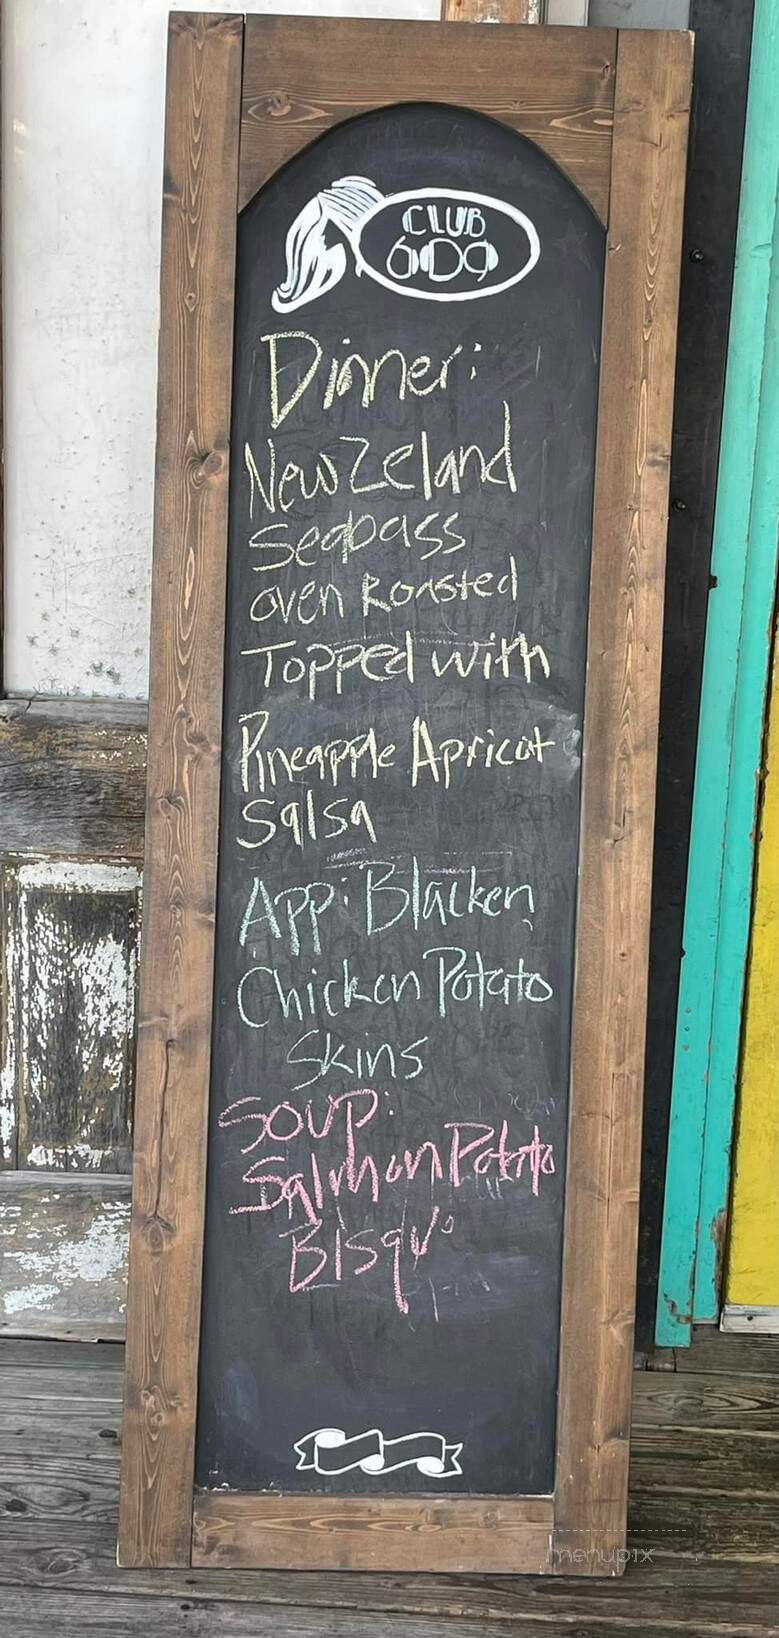 CLUB
609
Dinner:
New Zeland
Seabass
oven Roasted
Topped with
Pineapple Apricot
Salsa
App: Blacken
Chicken Potato
Skins
Soup:
Salmon Potato
Bisqu
menupix